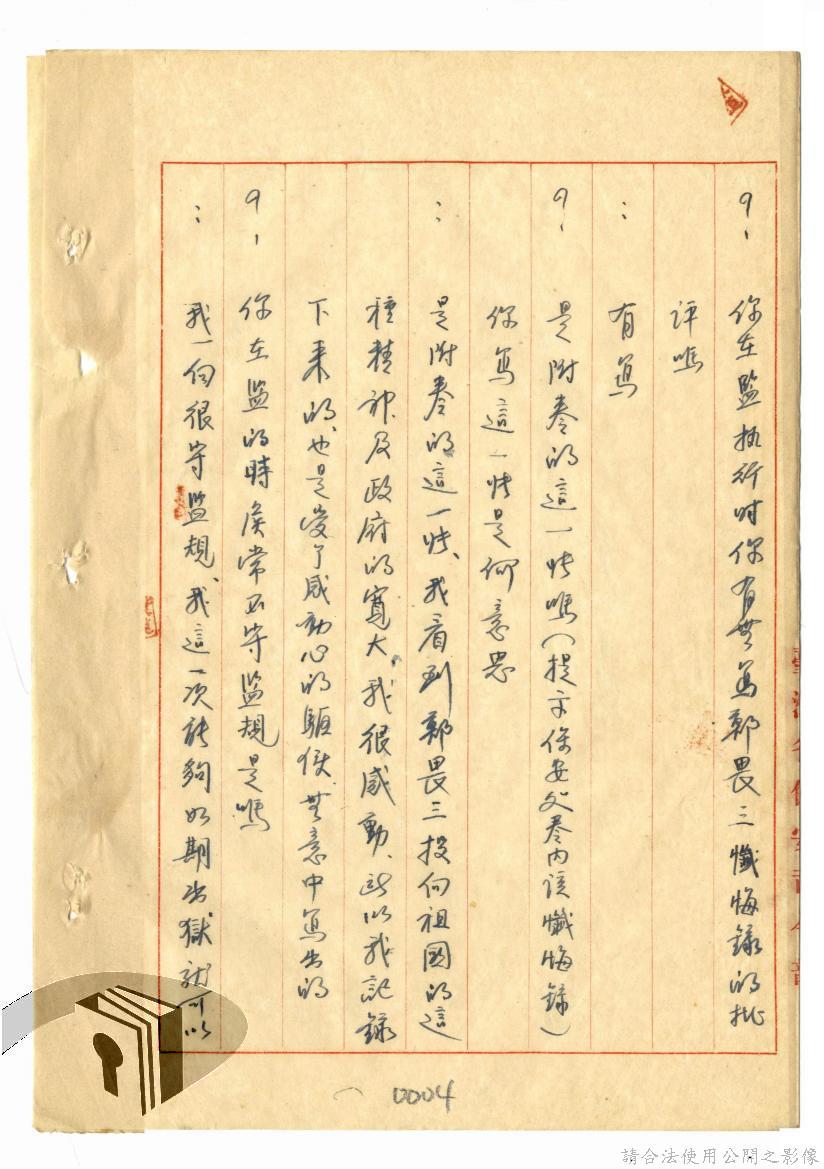 9、你在監执行时你有無為郭畏三懺悔錄的批
評嗎
：有寫
9、是附卷的這一帙嗎（提示保安处卷内該懺悔錄）
你寫這一帙是何意思
：是附卷的這一帙、我看到郭畏三投向祖國的這
種精神及政府的寬大，我很感動、所以我記錄
下来的，也是受了感动心的驅使，無意中寫出的
9、你在监的時候常不守监規是嗎
：我一向很守监規、我這一次能夠如期出獄就可以
0004
請合法使用公開之影像